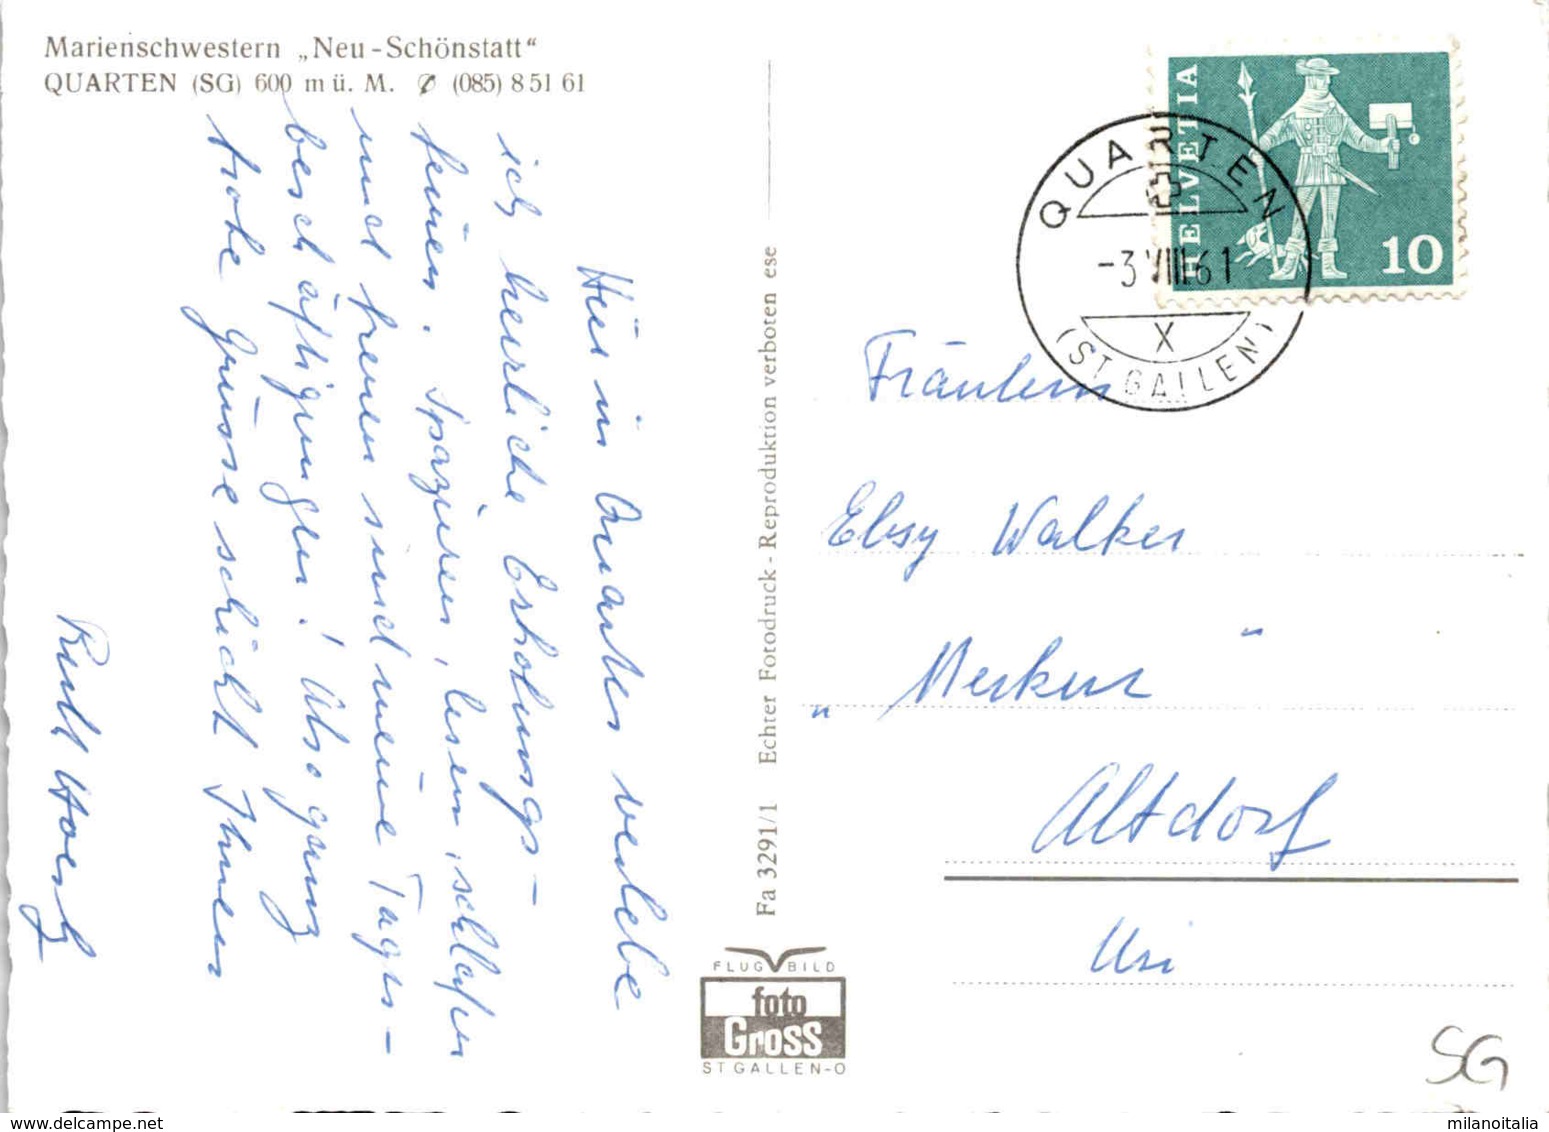 Marienschwestern „Neu-Schönstatt“
QUARTEN (SG) 600 m ü. M. ✆ (085) 8 51 61
Hier in Quarten verlebe
ich herrliche Erholungs-
ferien. Spazieren, lesen, schlafen
und freuen sind meine Tages-
beschäftigungen! Also ganz
frohe Grüsse schickt Ihnen
Fa 3291/1 Echter Fotodruck - Reproduktion verboten ese
FLUG BILD
foto
Gross
ST GALLEN-O
HELVETIA
10
QUARTEN
-3.VIII.61
X
(ST. GALLEN)
Fräulein
Elsy Walker
„Merkur“
Altdorf
Uri
SG
milanoitalia